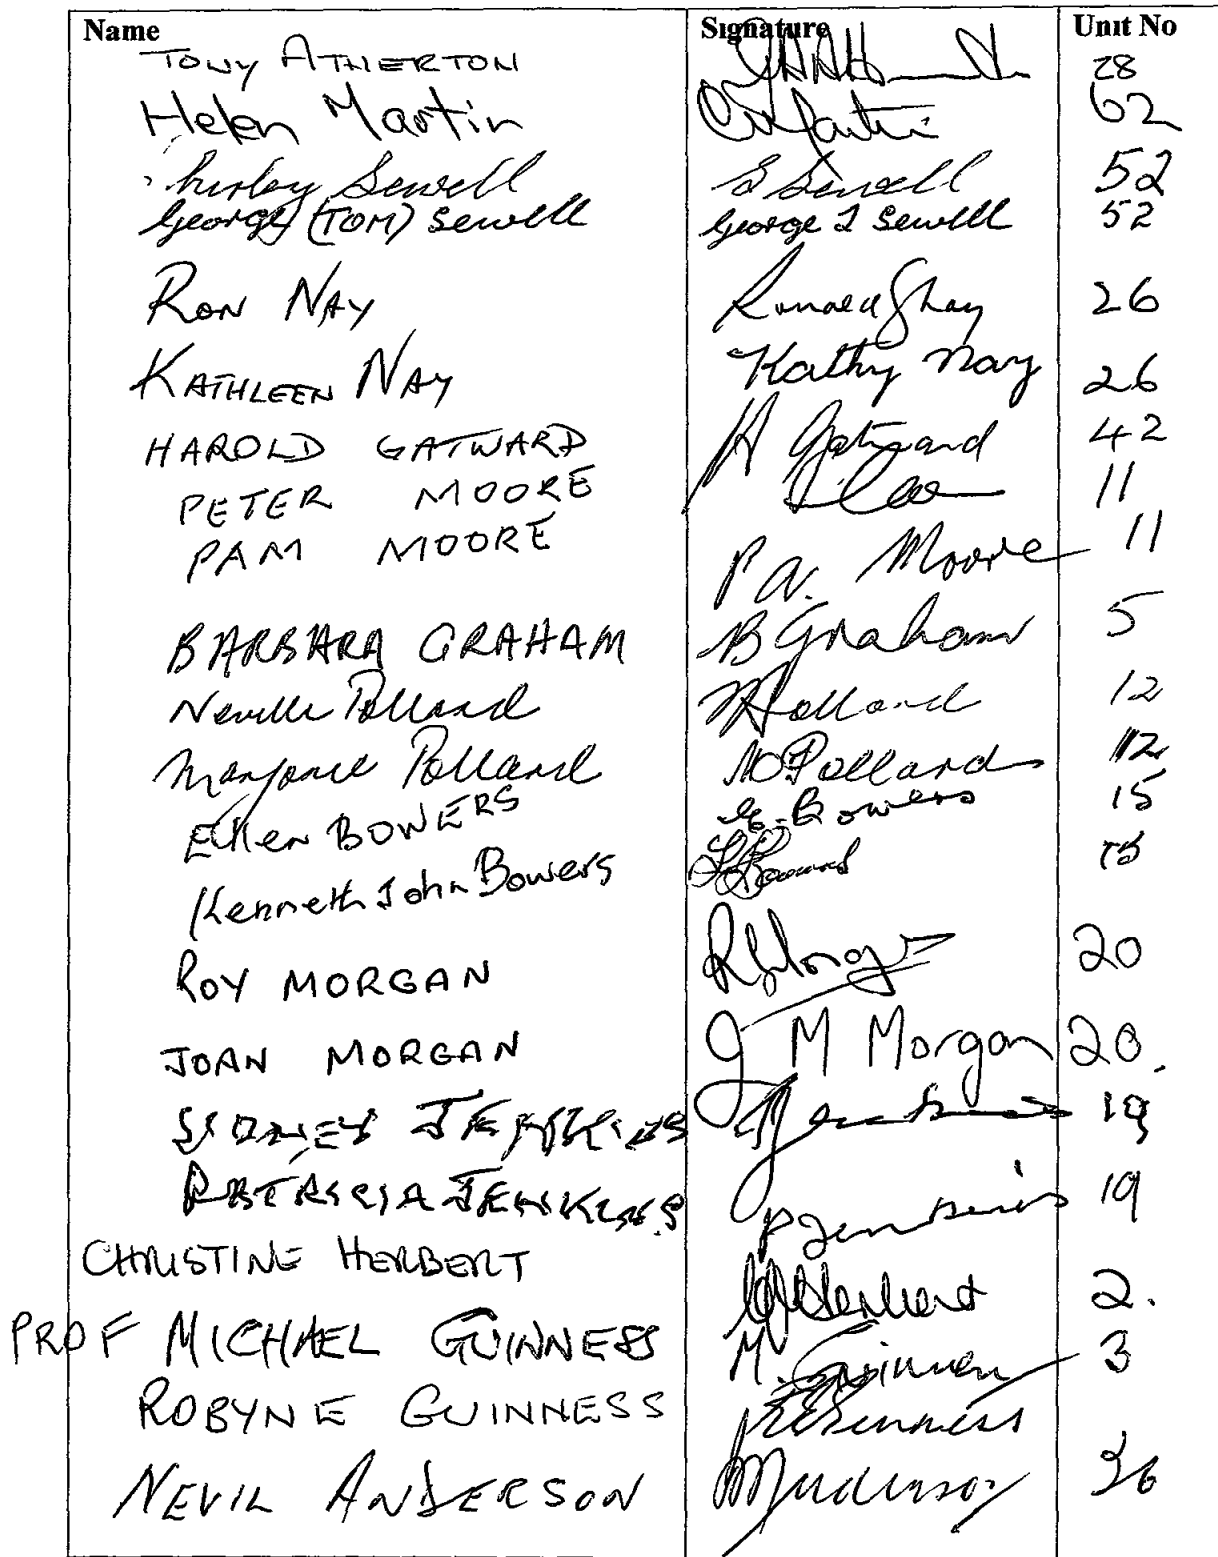 Name Signature Unit No
TONY ATHERTON 28
Helen Martin 62
Shirley Sewell S Sewell 52
George (TOM) Sewell George T Sewell 52
RON NAY 26
KATHLEEN NAY Kathy Nay 26
HAROLD GATWARD H Gatward 42
PETER MOORE 11
PAM MOORE P A. Moore 11
BARBARA GRAHAM B Graham 5
Neville Pollard N Pollard 12
Marjorie Pollard M Pollard 12
Ellen BOWERS E. Bowers 15
Kenneth John Bowers 15
ROY MORGAN 20
JOAN MORGAN J M Morgan 20.
SIDNEY JENKINS 19
PATRICIA JENKINS P Jenkins 19
CHRISTINE HERBERT 2.
PROF MICHAEL GUINNESS M. Guinness 3
ROBYNE GUINNESS R Guinness
NEVIL ANDERSON 36